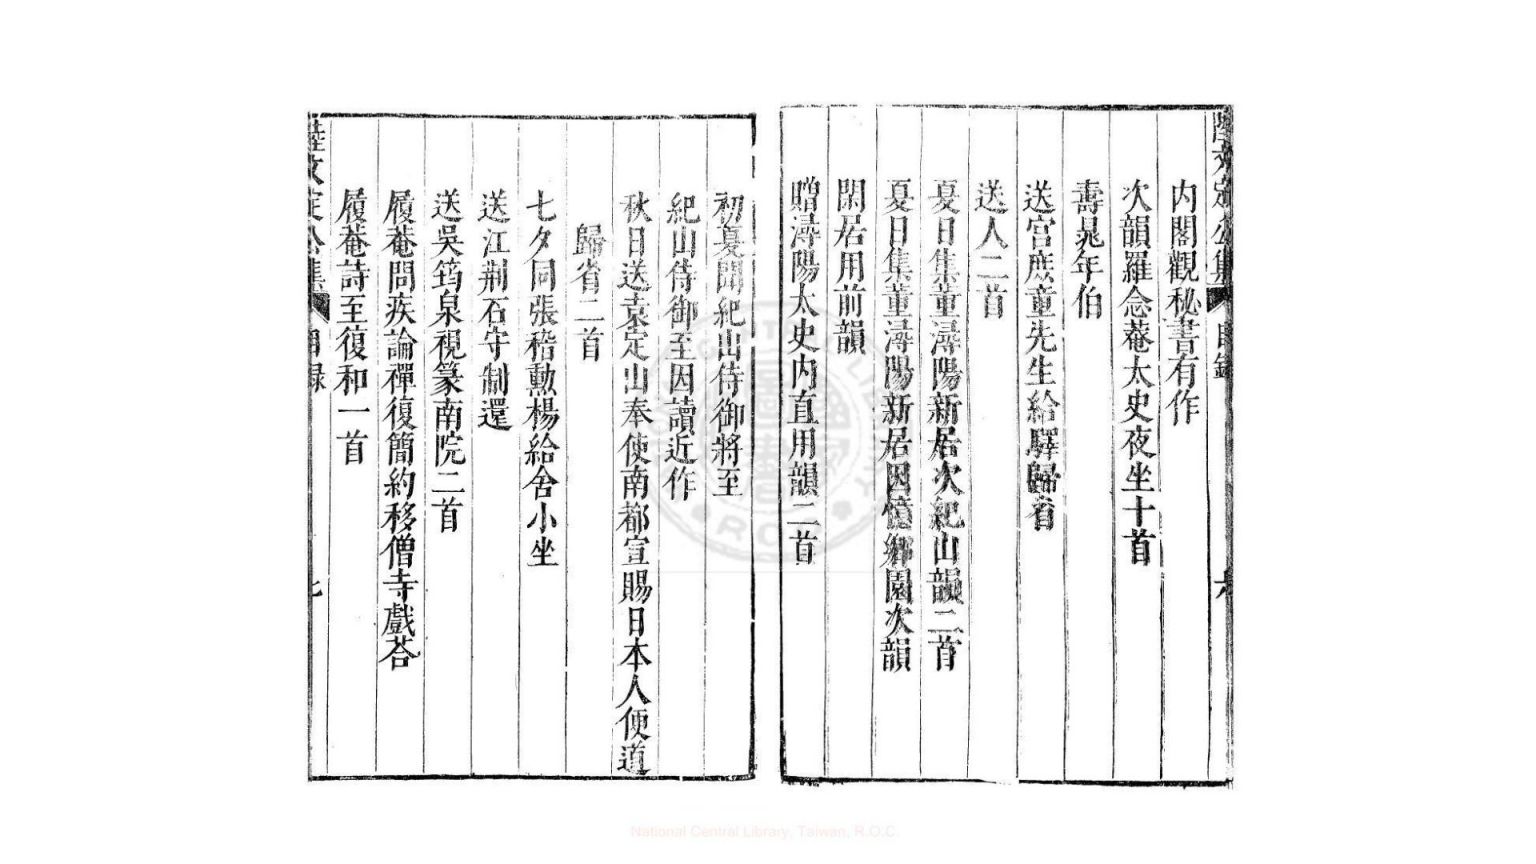 陸文定公集 目錄 六
内閣觀秘書有作
次韻羅念菴太史夜坐十首
壽晁年伯
送宫庶童先生給驛歸省
送人二首
夏日集董潯陽新居次紀山韻二首
夏日集董潯陽新居因憶鄉園次韻
閑居用前韻
贈潯陽太史内直用韻二首
初夏聞紀山侍御將至
紀山侍御至因讀近作
秋日送袁定山奉使南都宣賜日本人便道
歸省二首
七夕同張嵇勳楊給舍小坐
送江荆石守制還
送吳筠泉視篆南院二首
履菴問疾論禪復簡約移僧寺戲荅
履菴詩至復和一首
陸文定公集 目録 七
National Central Library, Taiwan, R.O.C.